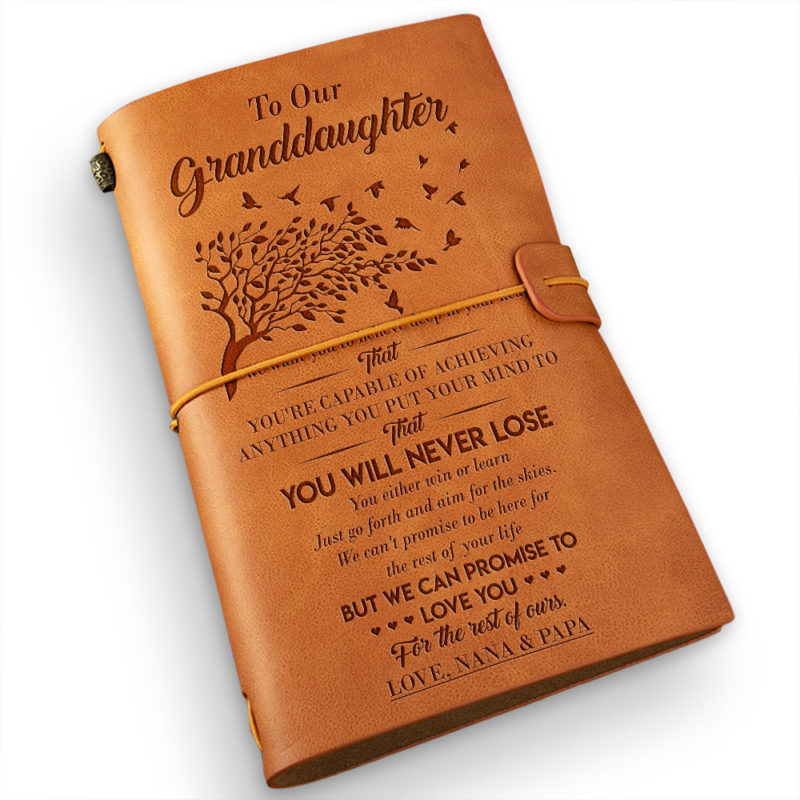 To Our
Granddaughter
We want you to believe deep in your
That
YOU'RE CAPABLE OF ACHIEVING
ANYTHING YOU PUT YOUR MIND TO
That
YOU WILL NEVER LOSE
You either win or learn
Just go forth and aim for the skies.
We can't promise to be here for
the rest of your life
BUT WE CAN PROMISE TO
LOVE YOU
For the rest of ours.
LOVE, NANA & PAPA